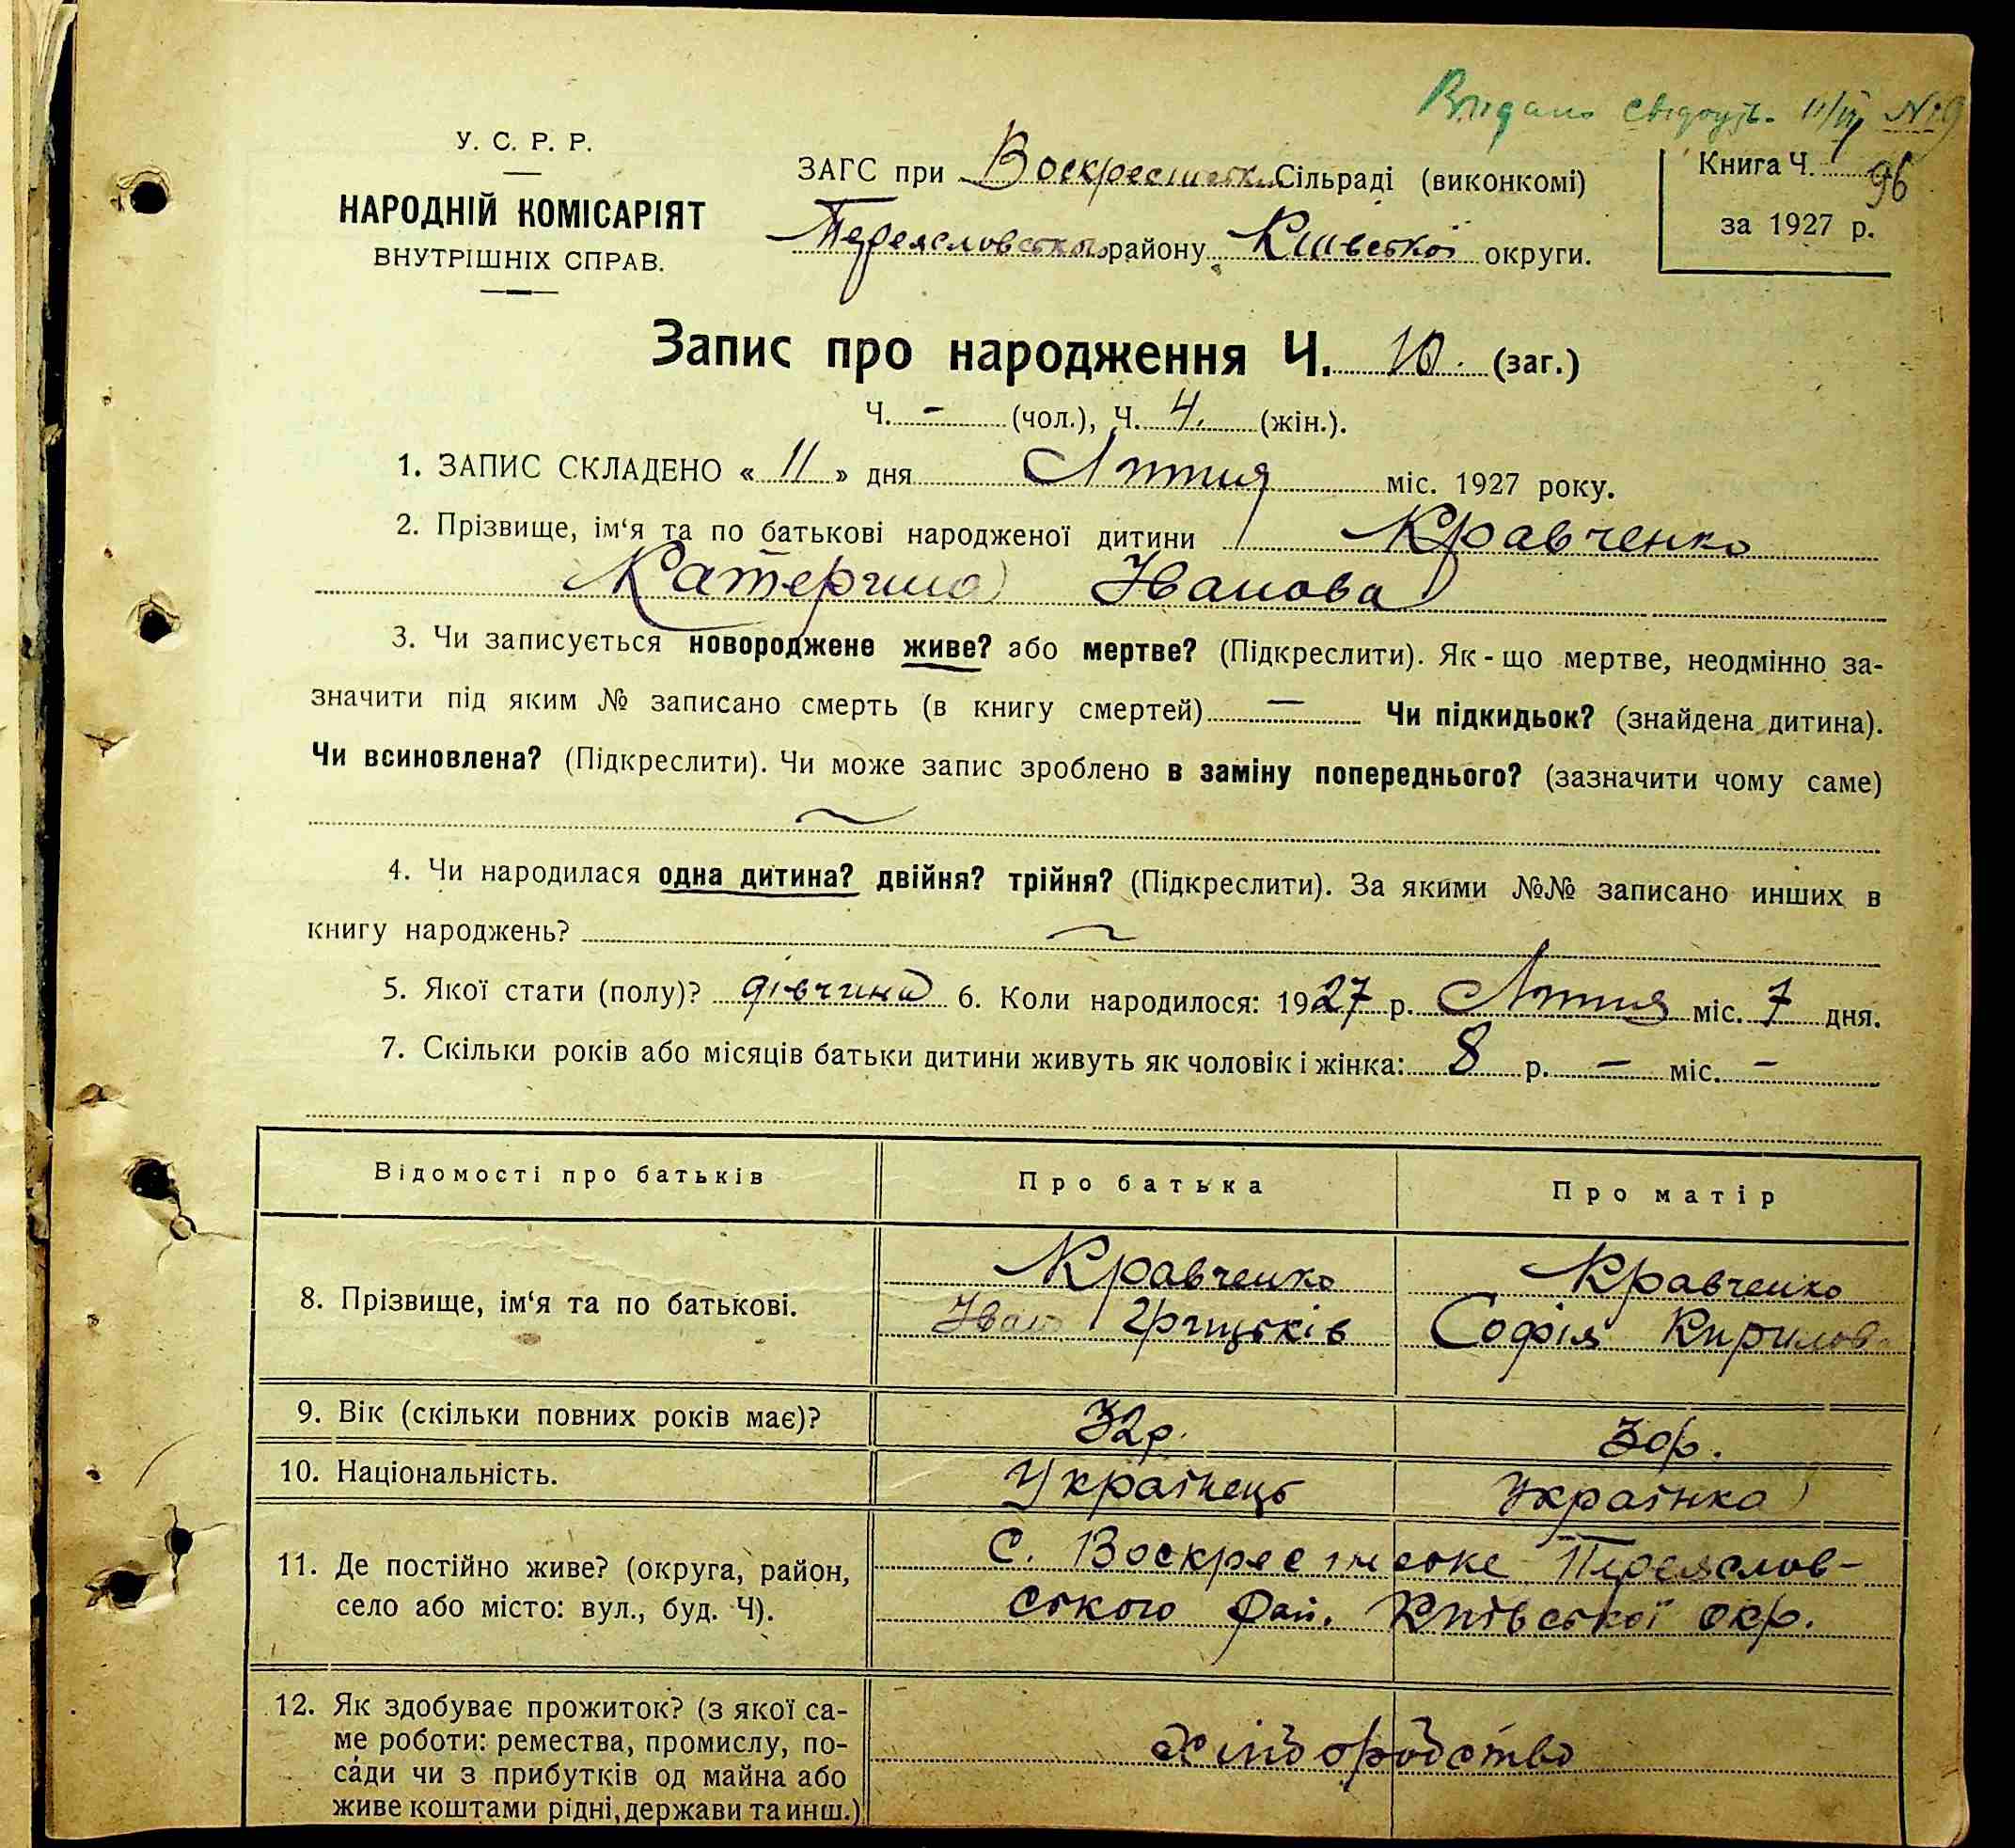 Видано свідоцт. 11/III № 9
У. С. Р. Р.
НАРОДНІЙ КОМІСАРІЯТ
ВНУТРІШНІХ СПРАВ.
ЗАГС при Воскресінській Сільраді (виконкомі)
Переяславського району Київської округи.
Книга Ч.
96
за 1927 р.
Запис про народження Ч. 10. (заг.)
Ч. – (чол.), Ч. 4. (жін.).
1. ЗАПИС СКЛАДЕНО « 11 » дня Лютня міс. 1927 року.
2. Прізвище, ім‘я та по батькові народженої дитини Кравченко
Катерина Іванова
3. Чи записується новороджене живе? або мертве? (Підкреслити). Як-що мертве, неодмінно за-
значити під яким № записано смерть (в книгу смертей) — Чи підкидьок? (знайдена дитина).
Чи всиновлена? (Підкреслити). Чи може запис зроблено в заміну попереднього? (зазначити чому саме)
~
4. Чи народилася одна дитина? двійня? трійня? (Підкреслити). За якими №№ записано инших в
книгу народжень? ~
5. Якої стати (полу)? дівчина 6. Коли народилося: 1927 р. Лютня міс. 7 дня.
7. Скільки років або місяців батьки дитини живуть як чоловік і жінка: 8 р. — міс. —
Відомості про батьків Про батька Про матір
8. Прізвище, ім‘я та по батькові.
Кравченко
Іван Грицьків
Кравченко
Софія Кирилова
9. Вік (скільки повних років має)? 32р. 30р.
10. Національність. Українець Українка
11. Де постійно живе? (округа, район,
село або місто: вул., буд. Ч).
С. Воскресінське Переяслов-
ського рай. Київської окр.
12. Як здобуває прожиток? (з якої са-
ме роботи: ремества, промислу, по-
сади чи з прибутків од майна або
живе коштами рідні, держави та инш.)
Хліборобство